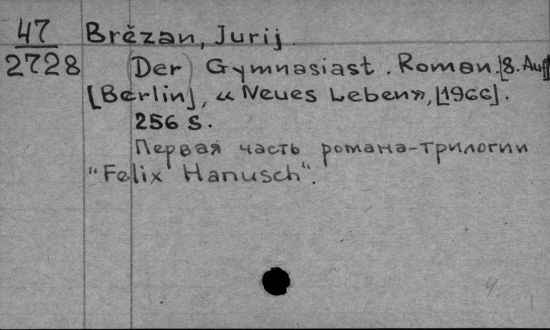 47 Brězan, Jurij
2728 (Der) Gymnasiast. Roman. [8. Aufl]
[Berlin], «Neues Leben», [1966].
256 S.
Первая часть романа-трилогии
"Felix Hanusch".